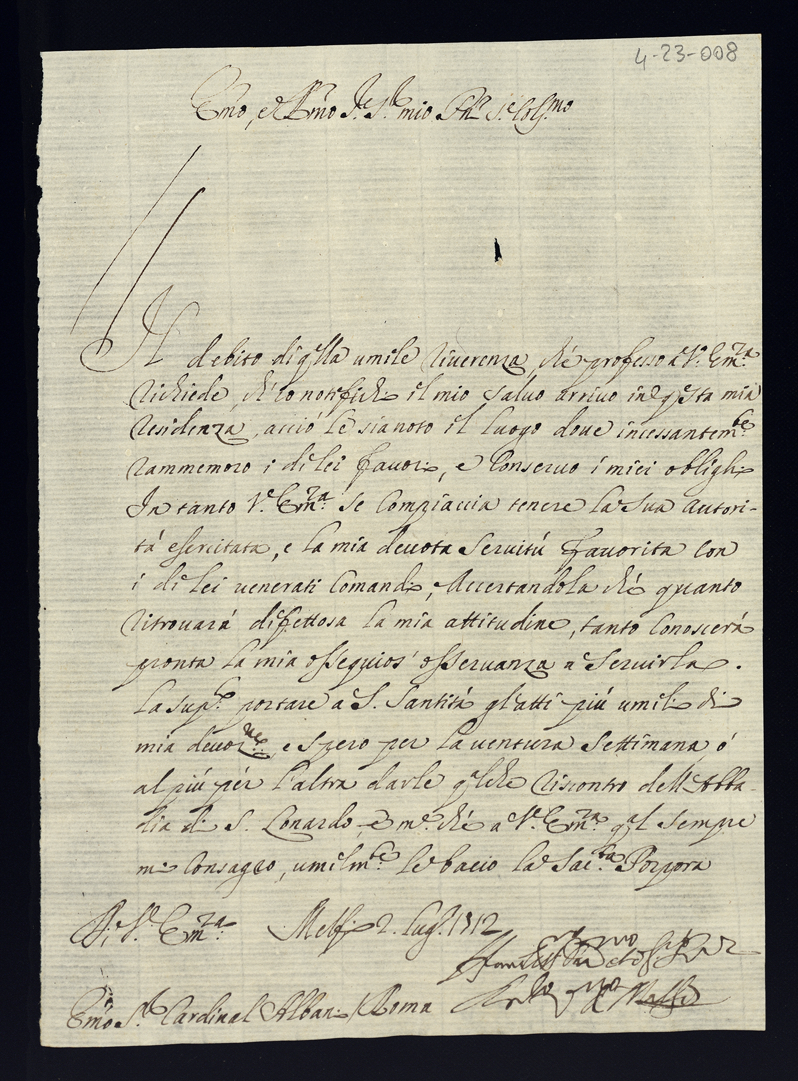 4-23-008
Emo, e Rmo Sre Sre mio Pne Colmo
Il debito di qlla umile riverenza, ché professo a V. Emza
richiede, ch'io notifichi il mio salvo arrivo in questa mia
residenza, acció le sia noto il luogo dove incessantemte
rammemoro i di lei favori, e conservo i miei oblighi
In tanto V. Emza se compiaccia tenere la sua autori-
tá esercitata, e la mia devota servitú favorita con
i di lei venerati comandi, accertandola ché quanto
ritrovará difettosa la mia attitudine, tanto conoscerá
pronta la mia ossequios' osservanza a servirla.
La supco portare a S. Santitá gl'atti piú umili di
mia devozne e spero per la ventura settimana ó
al piú pér l'altra darle qlche riscontro dell'Abba-
dia di S. Lonardo, e me ché a V. Emza qal sempre
mi consagro, umilmte le bacio la Sacra Porpora
Di V. Emza Melfi 2. Lugo 1712
Emo Sr Cardinal Albani / Roma